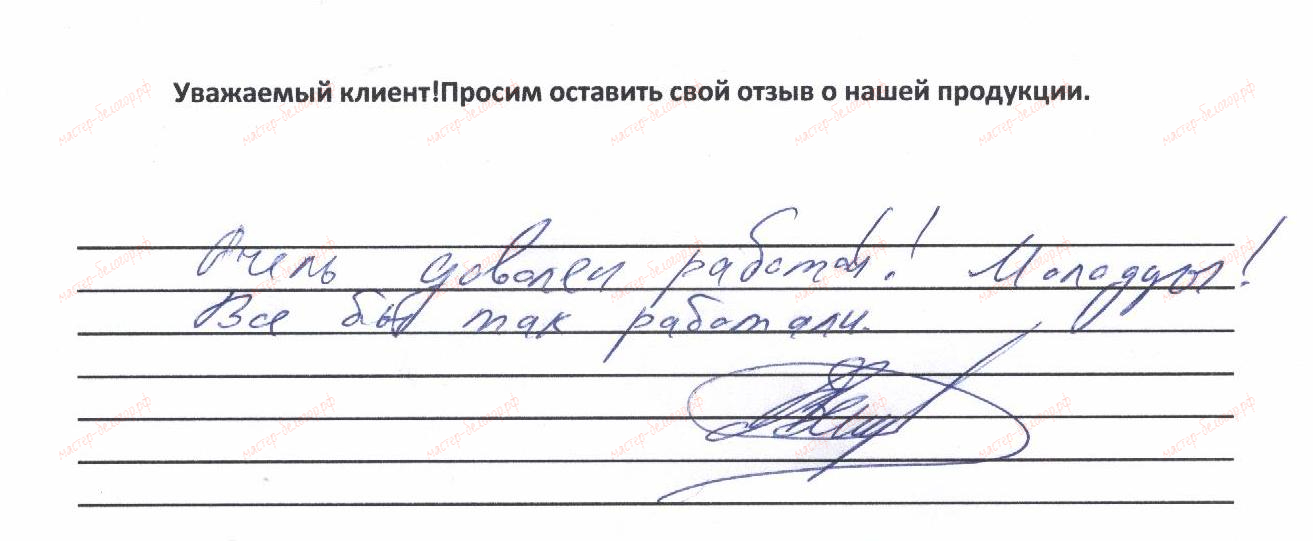 Уважаемый клиент!Просим оставить свой отзыв о нашей продукции.
Очень доволен работой! Молодцы!
Все бы так работали.
мастер-белогор.рф